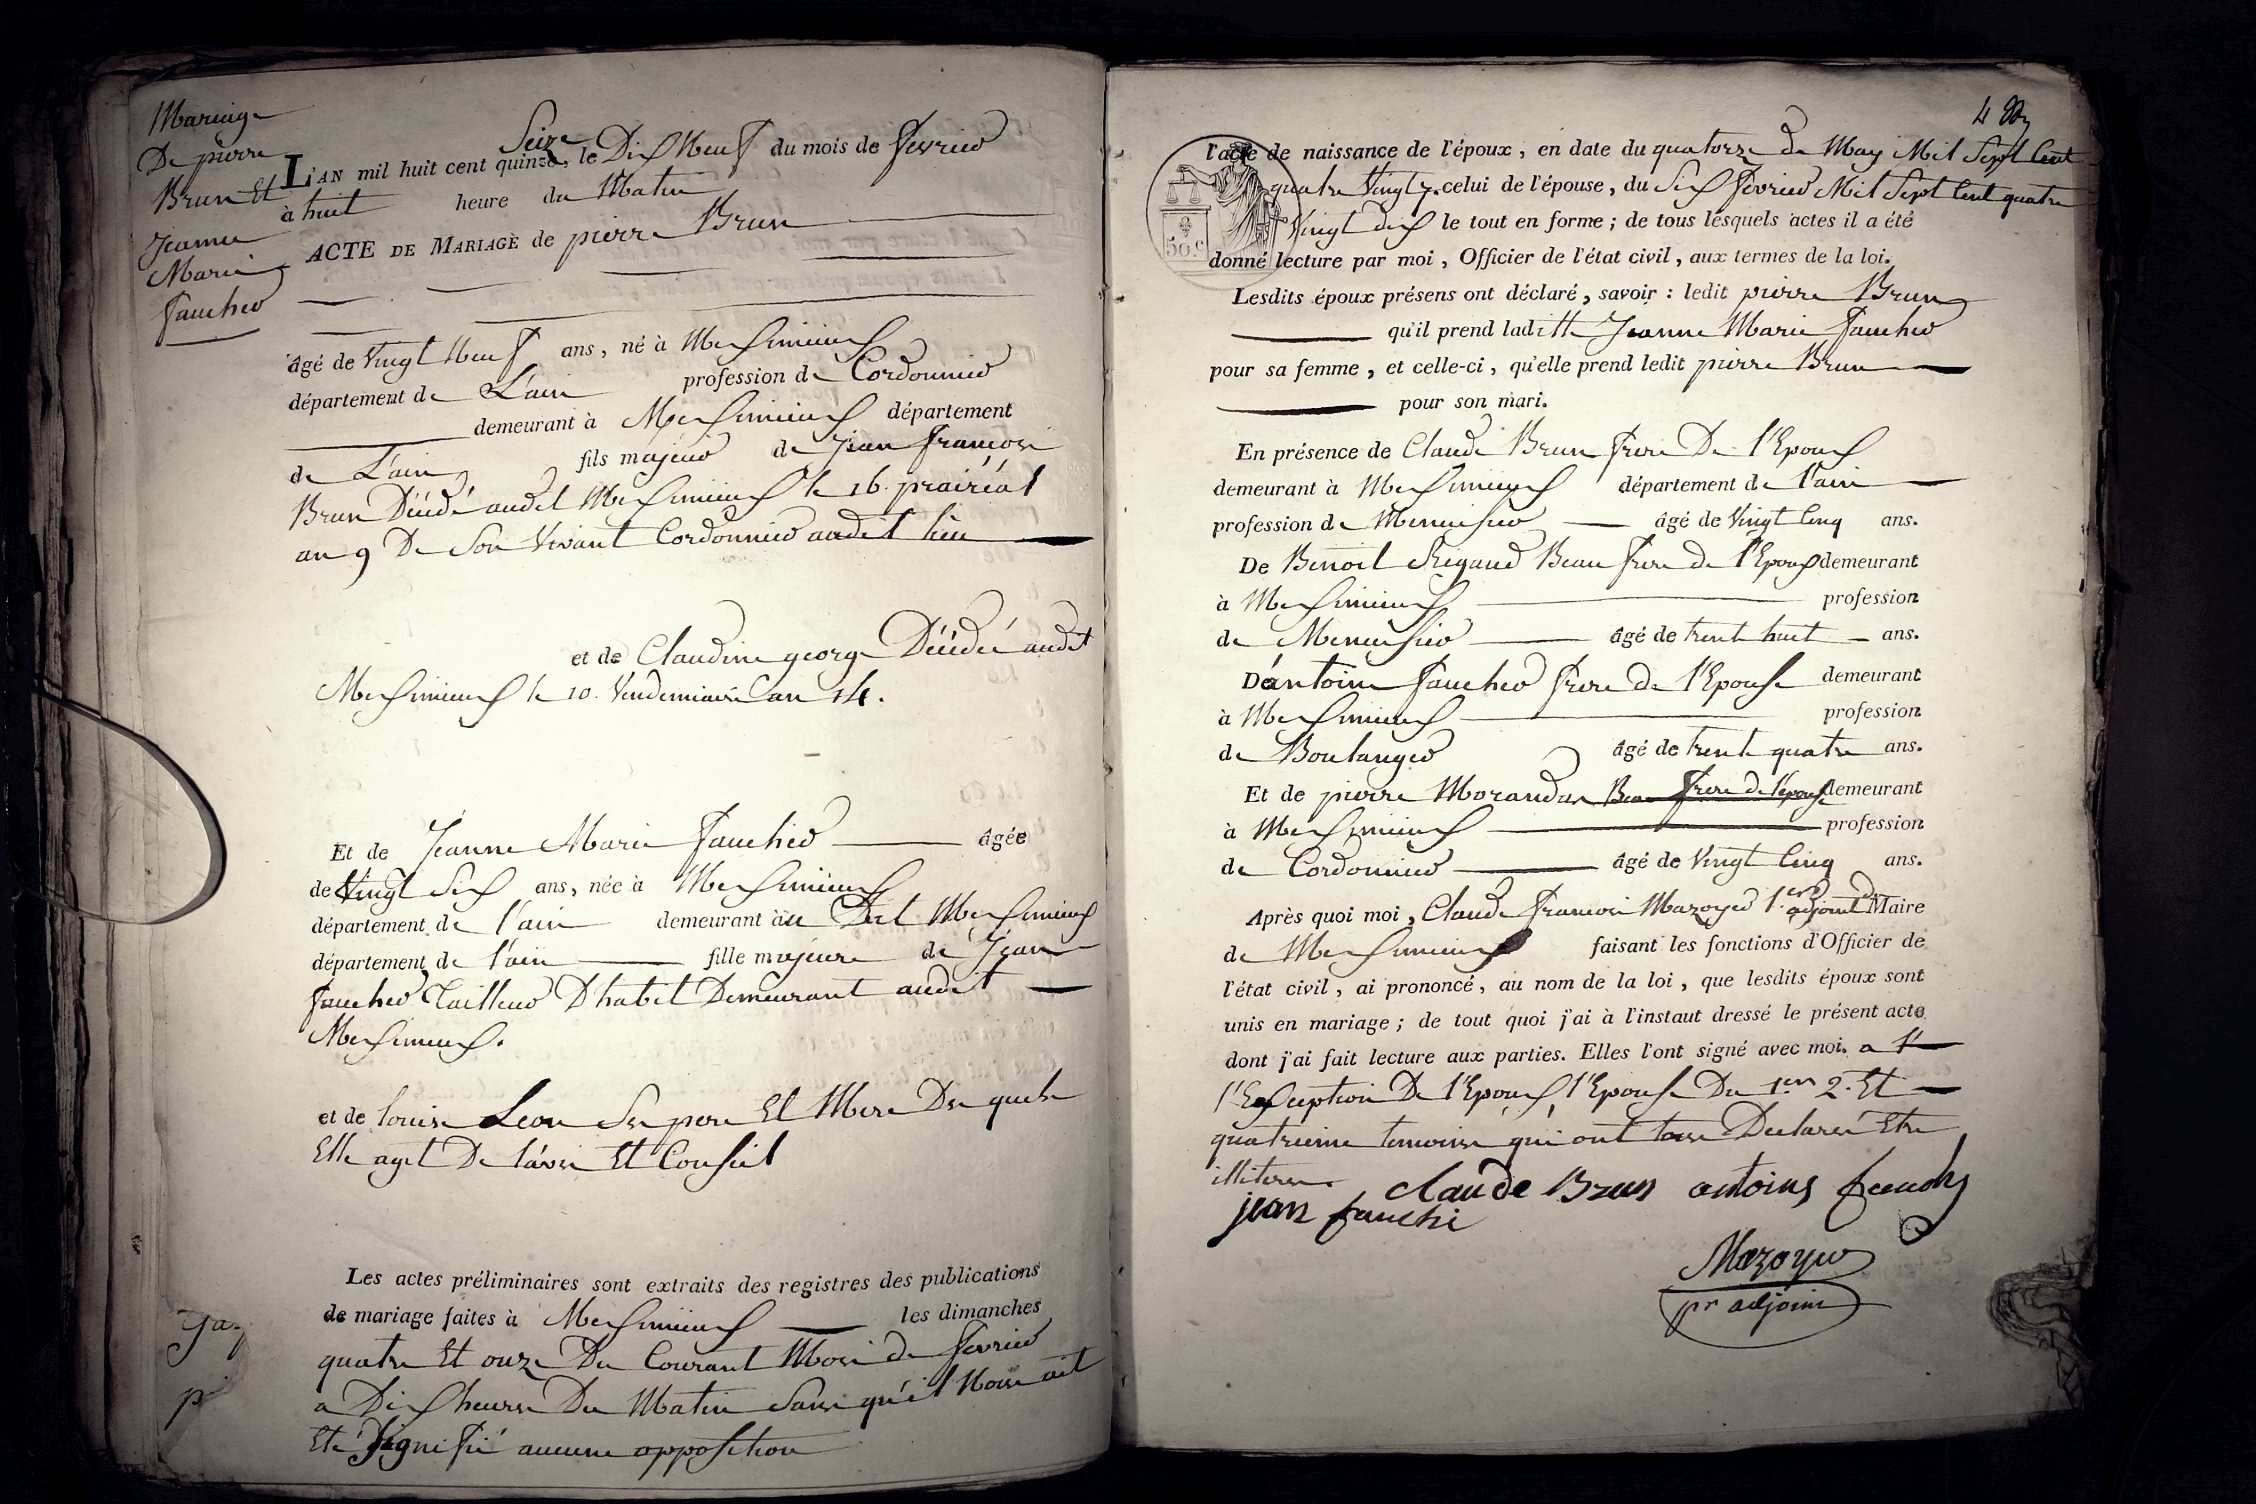 Mariage
De pierre
Brun Et
Jeanne
Marie
faucher
Seize
L'AN mil huit cent quinze, le Dix Neuf du mois de fevrier
à huit heure du Matin
ACTE DE MARIAGE de pierre Brun
âgé de Vingt Neuf ans, né à Meximieux
département de L'ain profession de Cordonnier
demeurant à Meximieux département
de L'ain fils majeur de Jean francois
Brun Décédé audit Meximieux le 16. prairéal
an 9 De Son Vivant Cordonnier audit lieu
et de Claudine george Décédée audit
Meximieux le 10. Vendemiaire an 14.
Et de Jeanne Marie faucher âgée
de Vingt Six ans, née à Meximieux
département de l'ain demeurant au Dit Meximieux
département de l'ain fille majeure de Jean
faucher Tailleur D'habit Demeurant audit
Meximieux.
et de louise Leon Ses pere Et Mere Des quels
Elle agit De l'avis Et Conseil
Les actes préliminaires sont extraits des registres des publications
de mariage faites à Meximieux les dimanches
quatre Et onze Du Courant Mois de fevrier
a Dix heures Du Matin Sans qu'il Nous ait
Eté Signifié aucune opposition
l'acte de naissance de l'époux, en date du quatorze de May Mil Sept Cent
quatre Vingt 7. celui de l'épouse, du Six fevrier Mil Sept Cent quatre
Vingt dix le tout en forme; de tous lesquels actes il a été
50 c
donné lecture par moi, Officier de l'état civil, aux termes de la loi.
Lesdits époux présens ont déclaré, savoir: ledit pierre Brun
qu'il prend laditte Jeanne Marie faucher
pour sa femme, et celle-ci, qu'elle prend ledit pierre Brun
pour son mari.
En présence de Claude Brun frere De l'Epoux
demeurant à Meximieux département de l'ain
profession de Menuisier âgé de Vingt Cinq ans.
De Benoit Rigaud Beau frere de l'Epoux demeurant
à Meximieux profession
de Menuisier âgé de trente huit ans.
D'antoine faucher frere de l'Epouse demeurant
à Meximieux profession
de Boulanger âgé de trente quatre ans.
Et de pierre Morandas Beau frere de l'épouse demeurant
à Meximieux profession
de Cordonnier âgé de Vingt Cinq ans.
Après quoi moi, Claude francois Mazoyer 1.er adjoint du Maire
de Meximieux faisant les fonctions d'Officier de
l'état civil, ai prononcé, au nom de la loi, que lesdits époux sont
unis en mariage; de tout quoi j'ai à l'instaut dressé le présent acte
dont j'ai fait lecture aux parties. Elles l'ont signé avec moi. a
l'Exception De l'Epoux l'Epouse Du 1.er 2. Et
quatrieme temoins qui ont tous Declaré Etre
illiteres.
claude Brun antoine
jean fauche
Mazoyer
pr adjoint